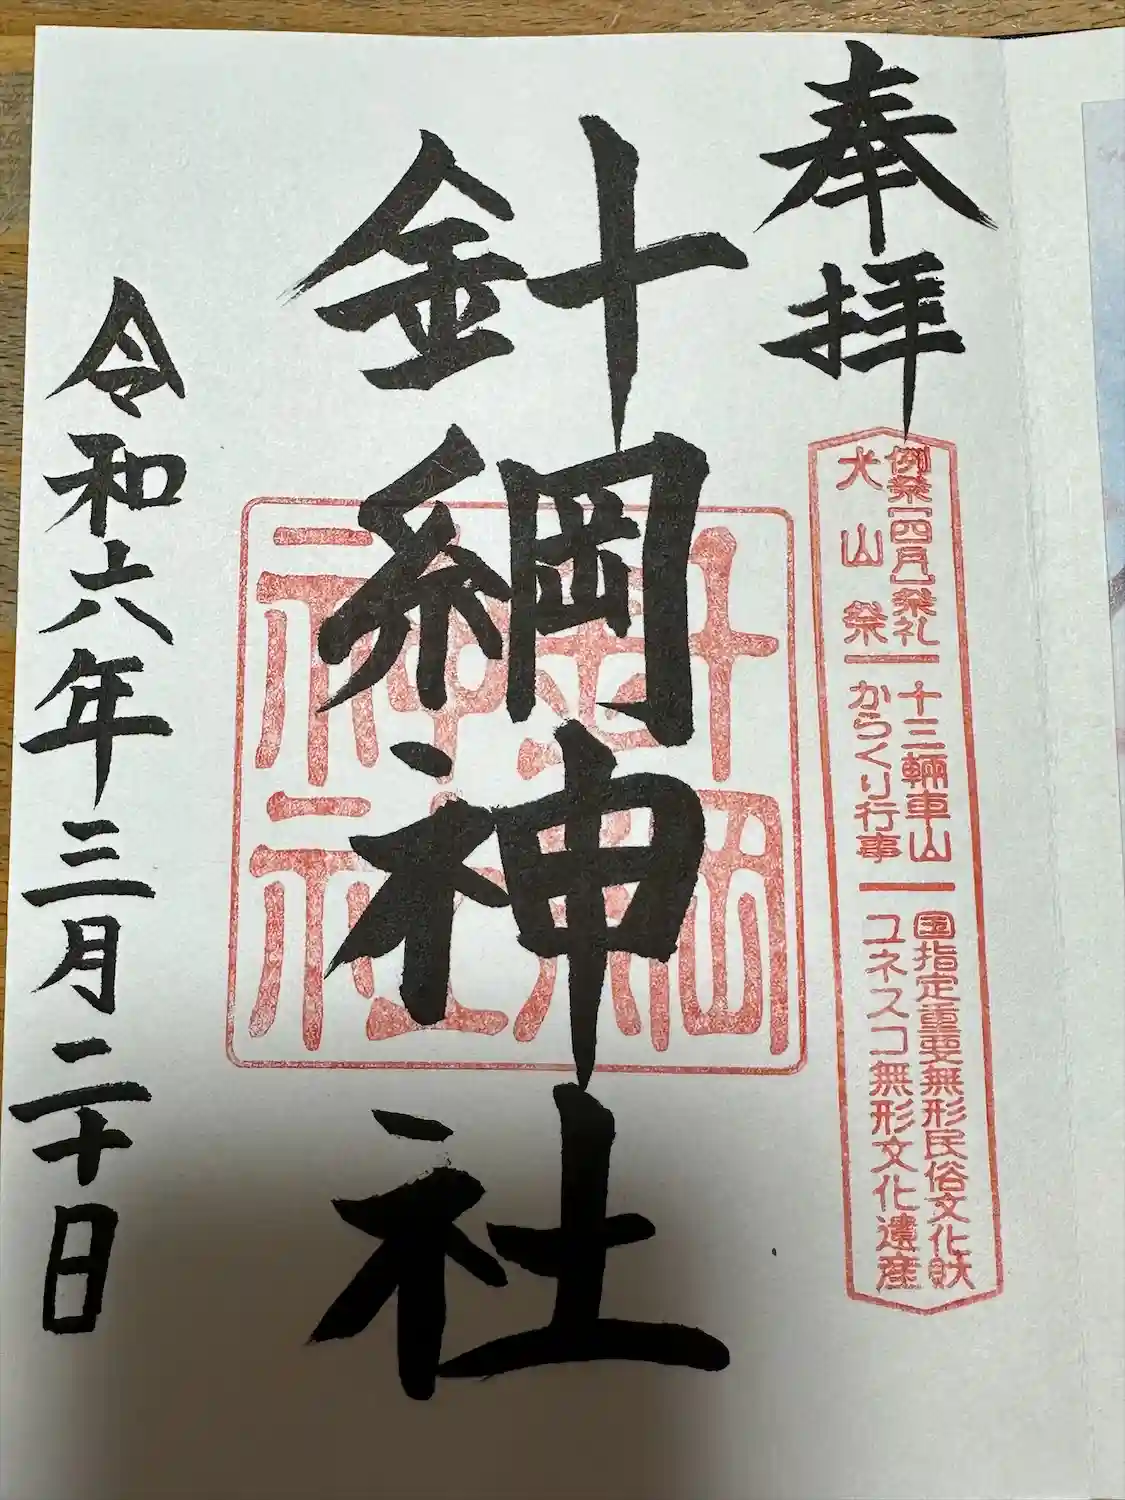 奉拝
例祭[四月]祭礼 十三輛車山 国指定重要無形民俗文化財
犬山祭 からくり行事 ユネスコ無形文化遺産
針綱神社
針綱
神社
令和六年三月二十日